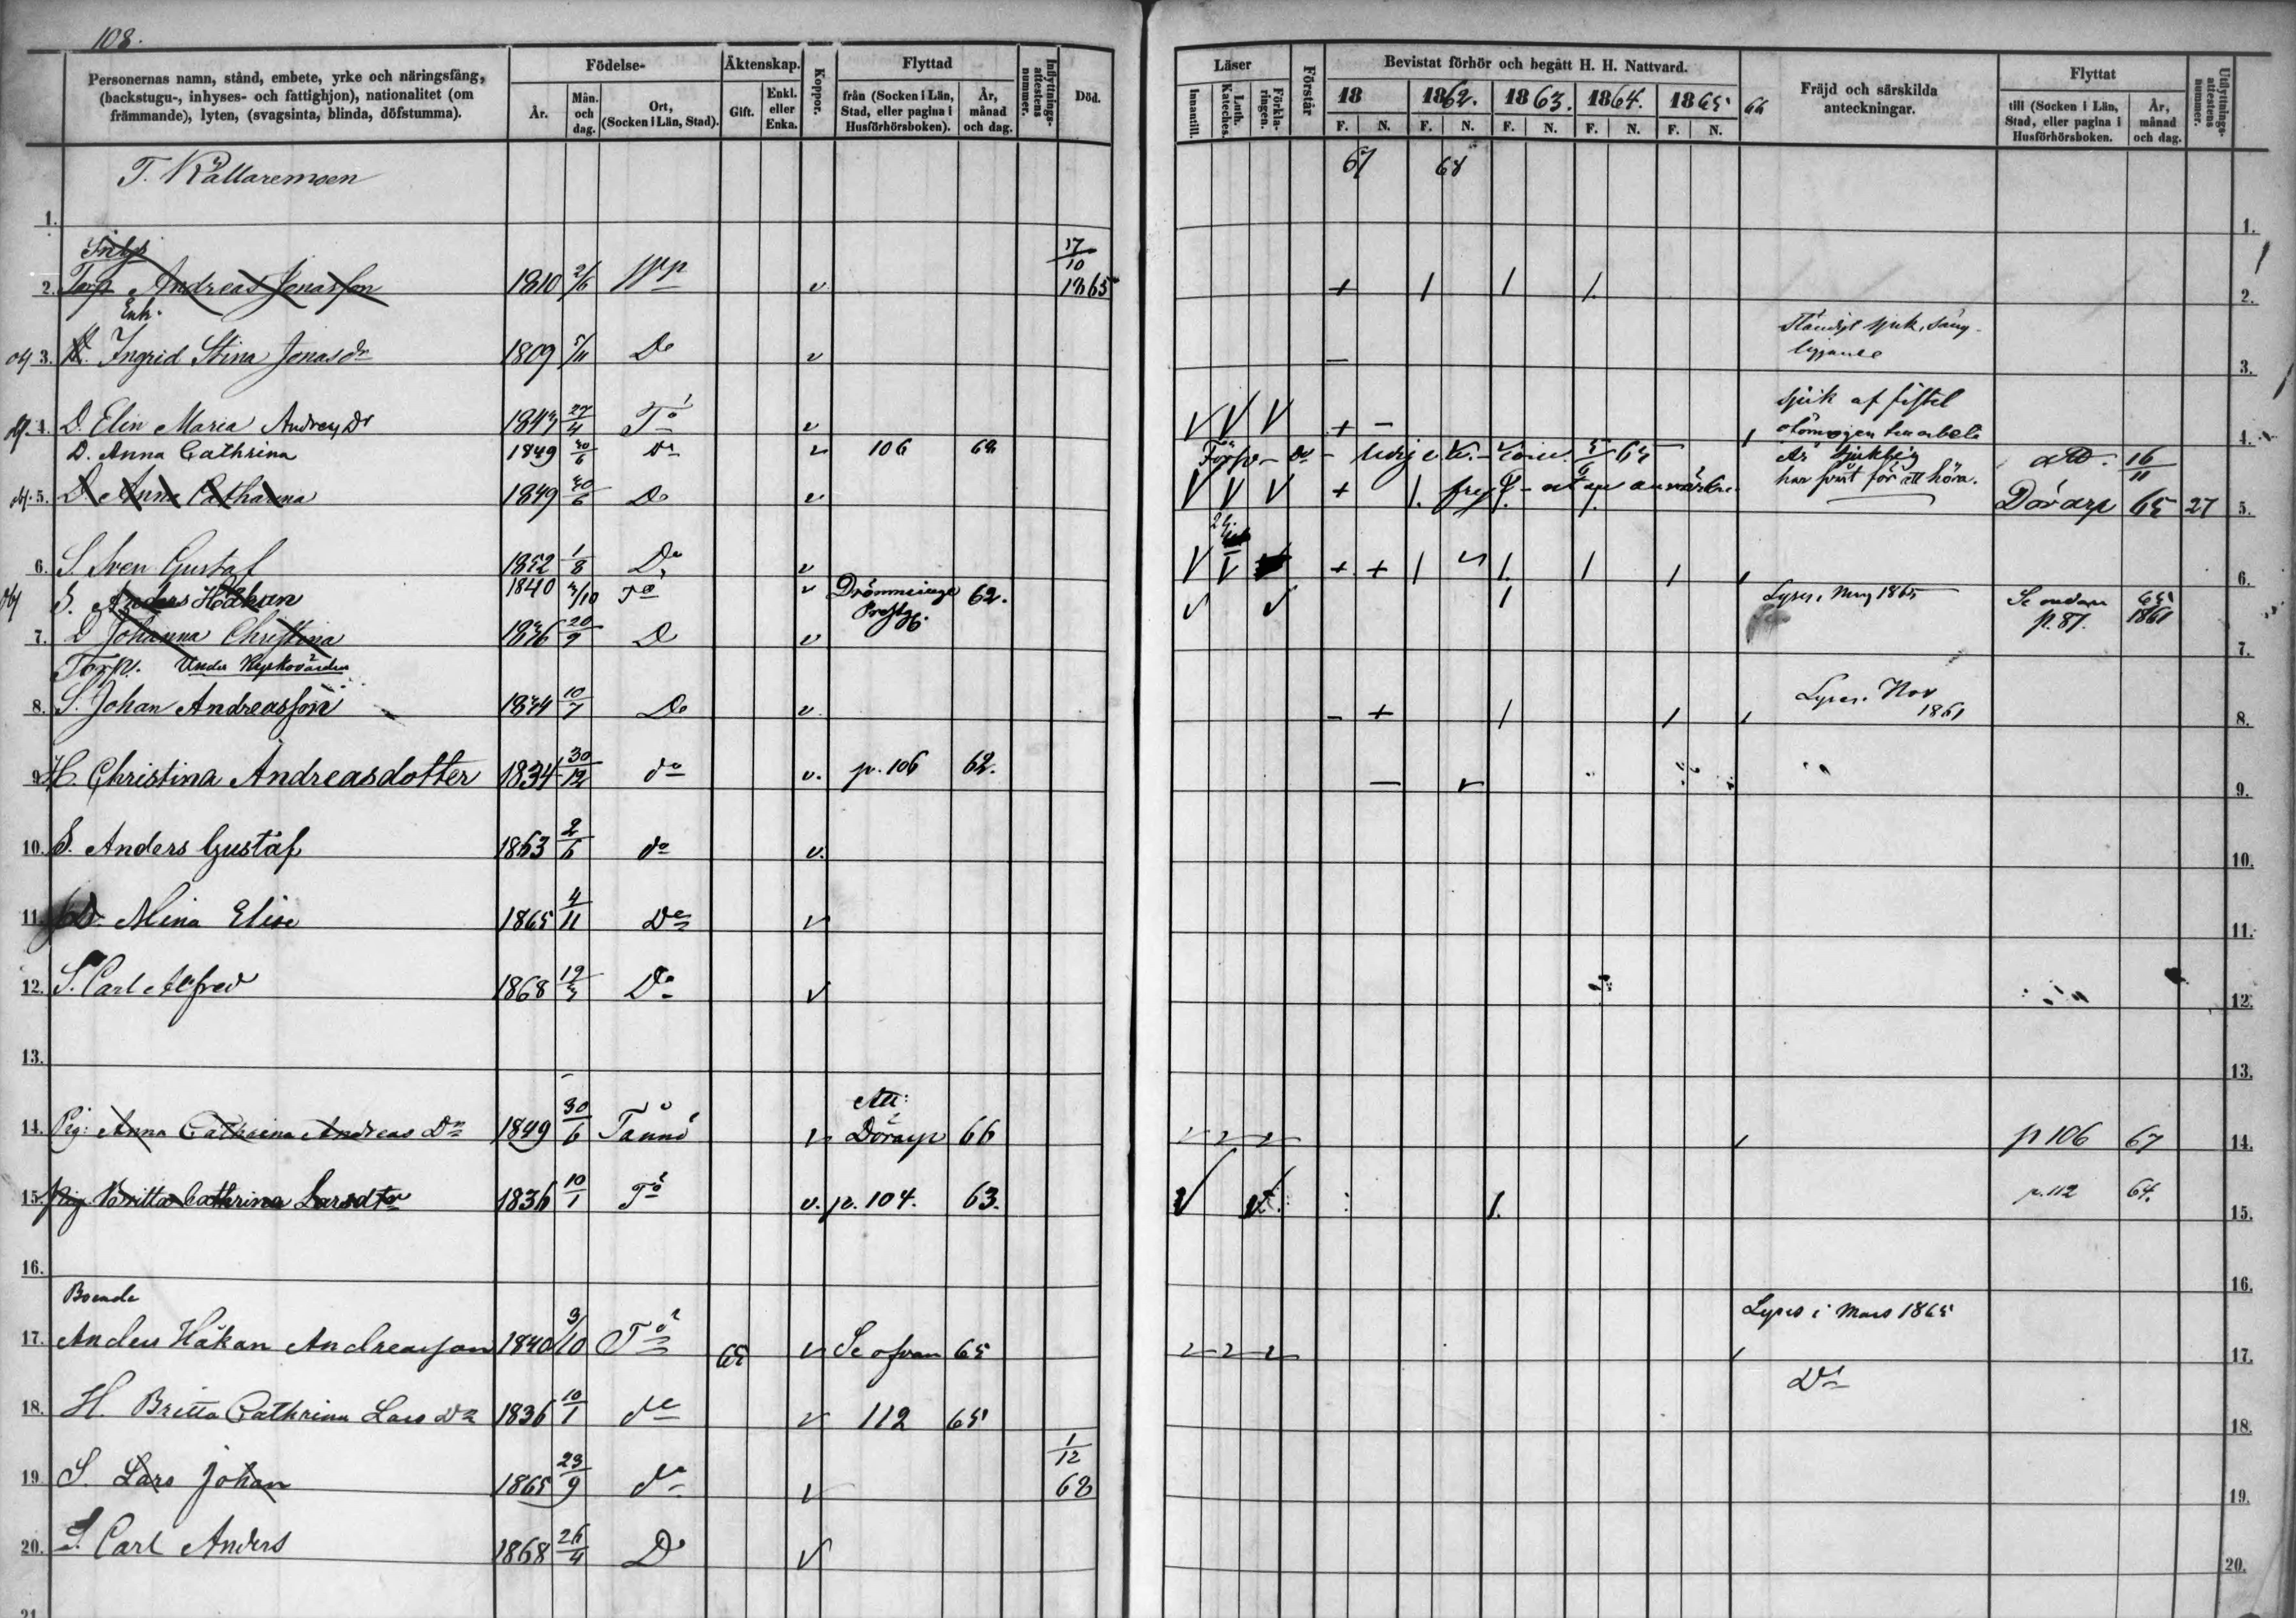 108.
Personernas namn, stånd, embete, yrke och näringsfång, (backstugu-, inhyses- och fattighjon), nationalitet (om främmande), lyten, (svagsinta, blinda, döfstumma).
Födelse-
År.
Mån. och dag.
Ort, (Socken i Län, Stad).
Äktenskap.
Gift.
Enkl. eller Enka.
Koppor.
Flyttad
från (Socken i Län, Stad, eller pagina i Husförhörsboken).
År, månad och dag.
Inflyttnings-attestens nummer.
Död.
Läser
Innantill.
Luth. Kateches.
Förkla-ringen.
Förstår
Bevistat förhör och begått H. H. Nattvard.
18 1862. 1863. 1864. 1865 66
F. N. F. N. F. N. F. N. F. N.
Fräjd och särskilda anteckningar.
Flyttat
till (Socken i Län, Stad, eller pagina i Husförhörsboken.
År, månad och dag.
Utflyttnings-attestens nummer.
T. Källaremoen 67 68
1. 1.
Inhys 17/10
2. Torp Andreas Jonasson 1810 2/6 v 1865 + / / /. 2.
Enk.
3. Ingrid Stina Jonasdr 1809 5/11 Do v – ständigt sjuk, säng-liggande 3.
4. D. Elin Maria Andreædr 27/4 To v V V V + – sjuk af fistel oförmögen 4.
D. Anna Cathrina 1849 30/6 do v 106 62 16/11
5. D. Anna Catharina 1849 30/6 Do v V V V + /. har svårt för att höra. Dörarp 65 27 5.
6. S. Sven Gustaf 1852 1/8 Do v V V + + / /. / / / 6.
S. Anders Håkan 1840 3/10 To v Drömminge 62. v v / Lyses 1865 Se nedan 65
7. D Johanna Christina 20/9 D v p. 87. 1861 7.
Torp. Under Kyrkovården
8. S. Johan Andreasson 1834 10/7 Do v – + / / / Lyses. Nov 1861 8.
9. H. Christina Andreasdotter 1834 30/12 do v. p. 106 62. – v 9.
10. S. Anders Gustaf 1863 2/6 do v. 10.
11. D. Mina Elise 1865 4/11 Do v 11.
12. S. Carl Alfred 1868 19/3 Do v 12.
13. 13.
14. Pig: Anna Cathrina Andreas Dr 1849 30/6 Tånnö v Dörarp 66 v v v / p 106 67 14.
15. Pig Britta Cathrina Larsdter 1836 10/1 To v. p. 104. 63. v v /. p. 112 64. 15.
16. 16.
Boende
17. Anders Håkan Andreasson 1840 3/10 To 65 v Se ofvan 65 v v v / Lyses i Mars 1865 17.
18. H. Britta Cathrina Lars Dr 1836 10/1 do v 112 65 Do 18.
19. S. Lars Johan 1865 23/9 do v 1/12 68 19.
20. S. Carl Anders 1868 26/4 D v 20.
21